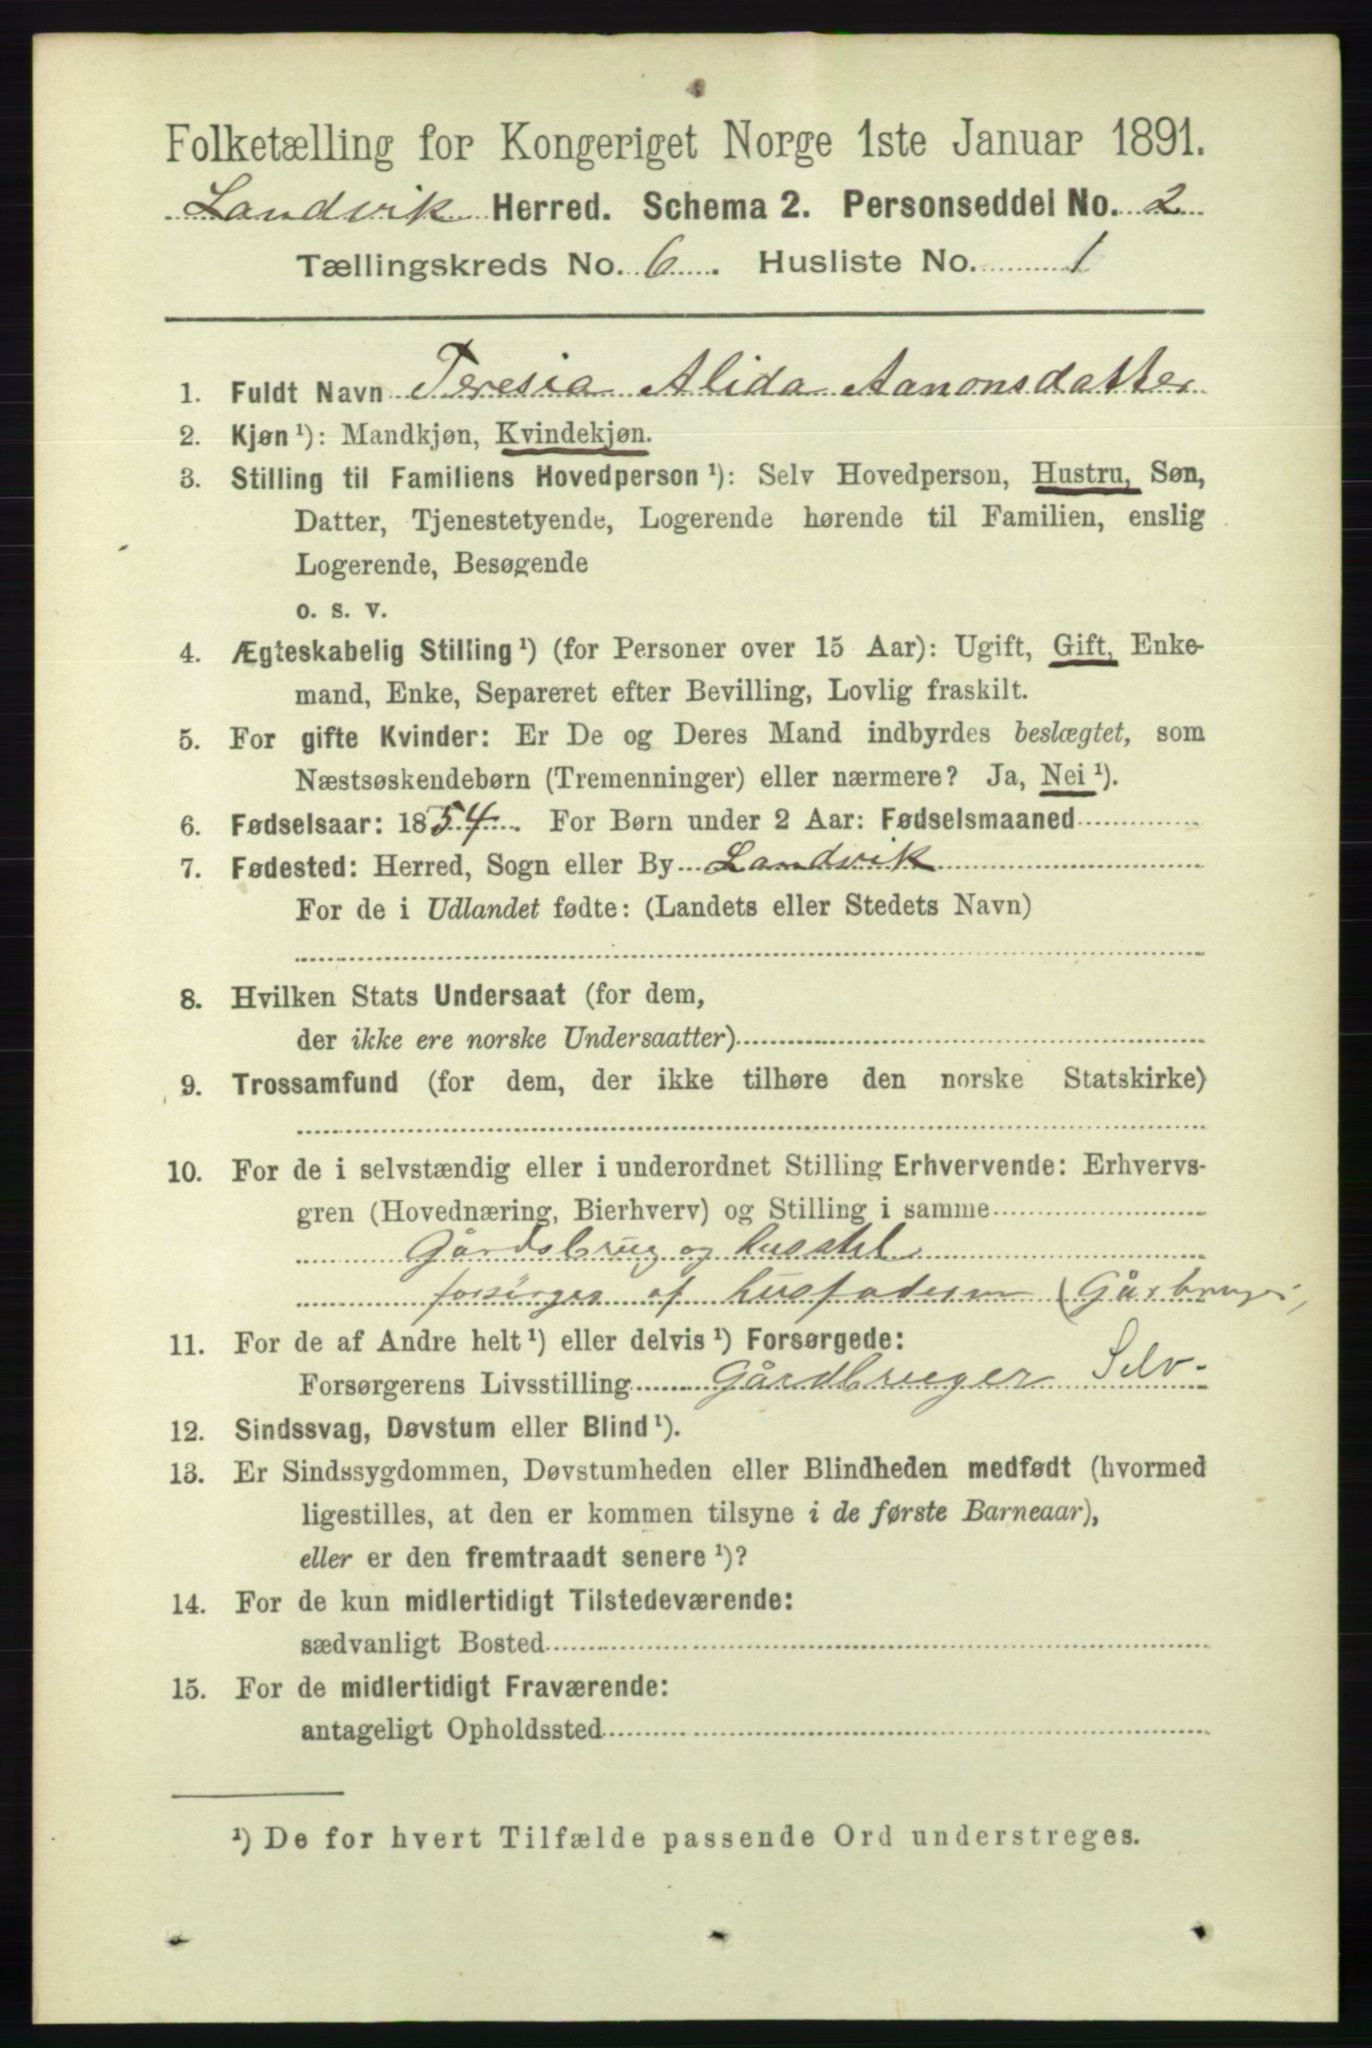 Folketælling for Kongeriget Norge 1ste Januar 1891.
Landvik Herred. Schema 2. Personseddel No. 2
Tællingskreds No. 6. Husliste No. 1
1. Fuldt Navn Teresia Alida Aanonsdatter
2. Kjøn ¹): Mandkjøn, Kvindekjøn.
3. Stilling til Familiens Hovedperson ¹): Selv Hovedperson, Hustru, Søn,
Datter, Tjenestetyende, Logerende hørende til Familien, enslig
Logerende, Besøgende
o. s. v.
4. Ægteskabelig Stilling ¹) (for Personer over 15 Aar): Ugift, Gift, Enke-
mand, Enke, Separeret efter Bevilling, Lovlig fraskilt.
5. For gifte Kvinder: Er De og Deres Mand indbyrdes beslægtet, som
Næstsøskendebørn (Tremenninger) eller nærmere? Ja, Nei ¹).
6. Fødselsaar: 1854. For Børn under 2 Aar: Fødselsmaaned
7. Fødested: Herred, Sogn eller By Landvik
For de i Udlandet fødte: (Landets eller Stedets Navn)
8. Hvilken Stats Undersaat (for dem,
der ikke ere norske Undersaatter)
9. Trossamfund (for dem, der ikke tilhøre den norske Statskirke)
10. For de i selvstændig eller i underordnet Stilling Erhvervende: Erhvervs-
gren (Hovednæring, Bierhverv) og Stilling i samme
Gårdsbrug og husstel
forsørges af husfaderen (Gårbruger,
11. For de af Andre helt ¹) eller delvis ¹) Forsørgede:
Forsørgerens Livsstilling Gårdbruger Selv-
12. Sindssvag, Døvstum eller Blind ¹).
13. Er Sindssygdommen, Døvstumheden eller Blindheden medfødt (hvormed
ligestilles, at den er kommen tilsyne i de første Barneaar),
eller er den fremtraadt senere ¹)?
14. For de kun midlertidigt Tilstedeværende:
sædvanligt Bosted
15. For de midlertidigt Fraværende:
antageligt Opholdssted
¹) De for hvert Tilfælde passende Ord understreges.